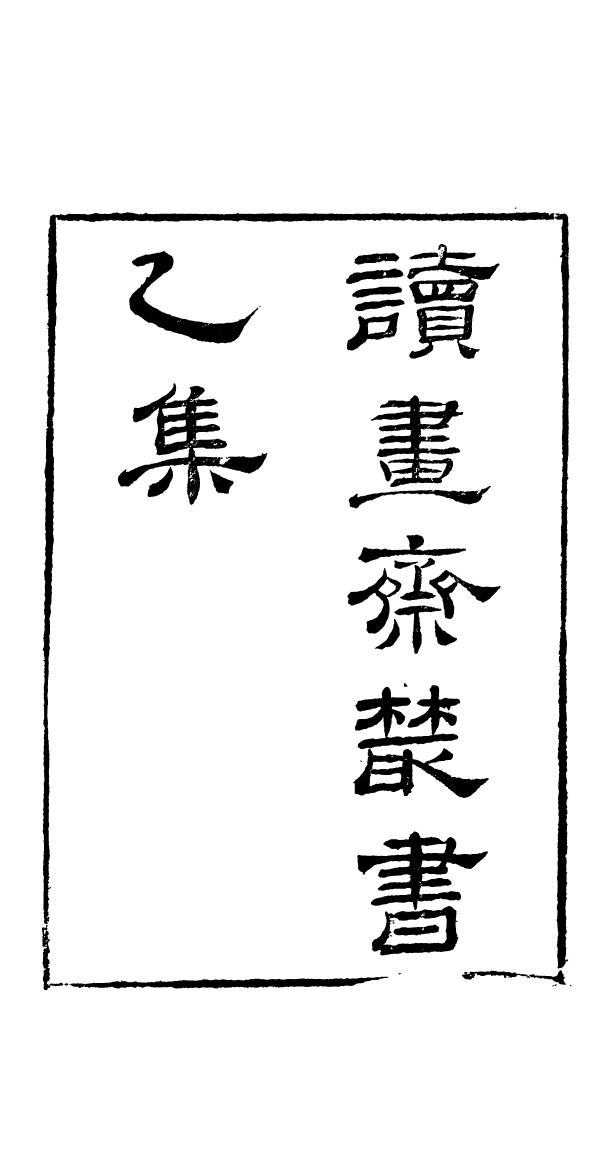 讀畫齋藂書
乙集